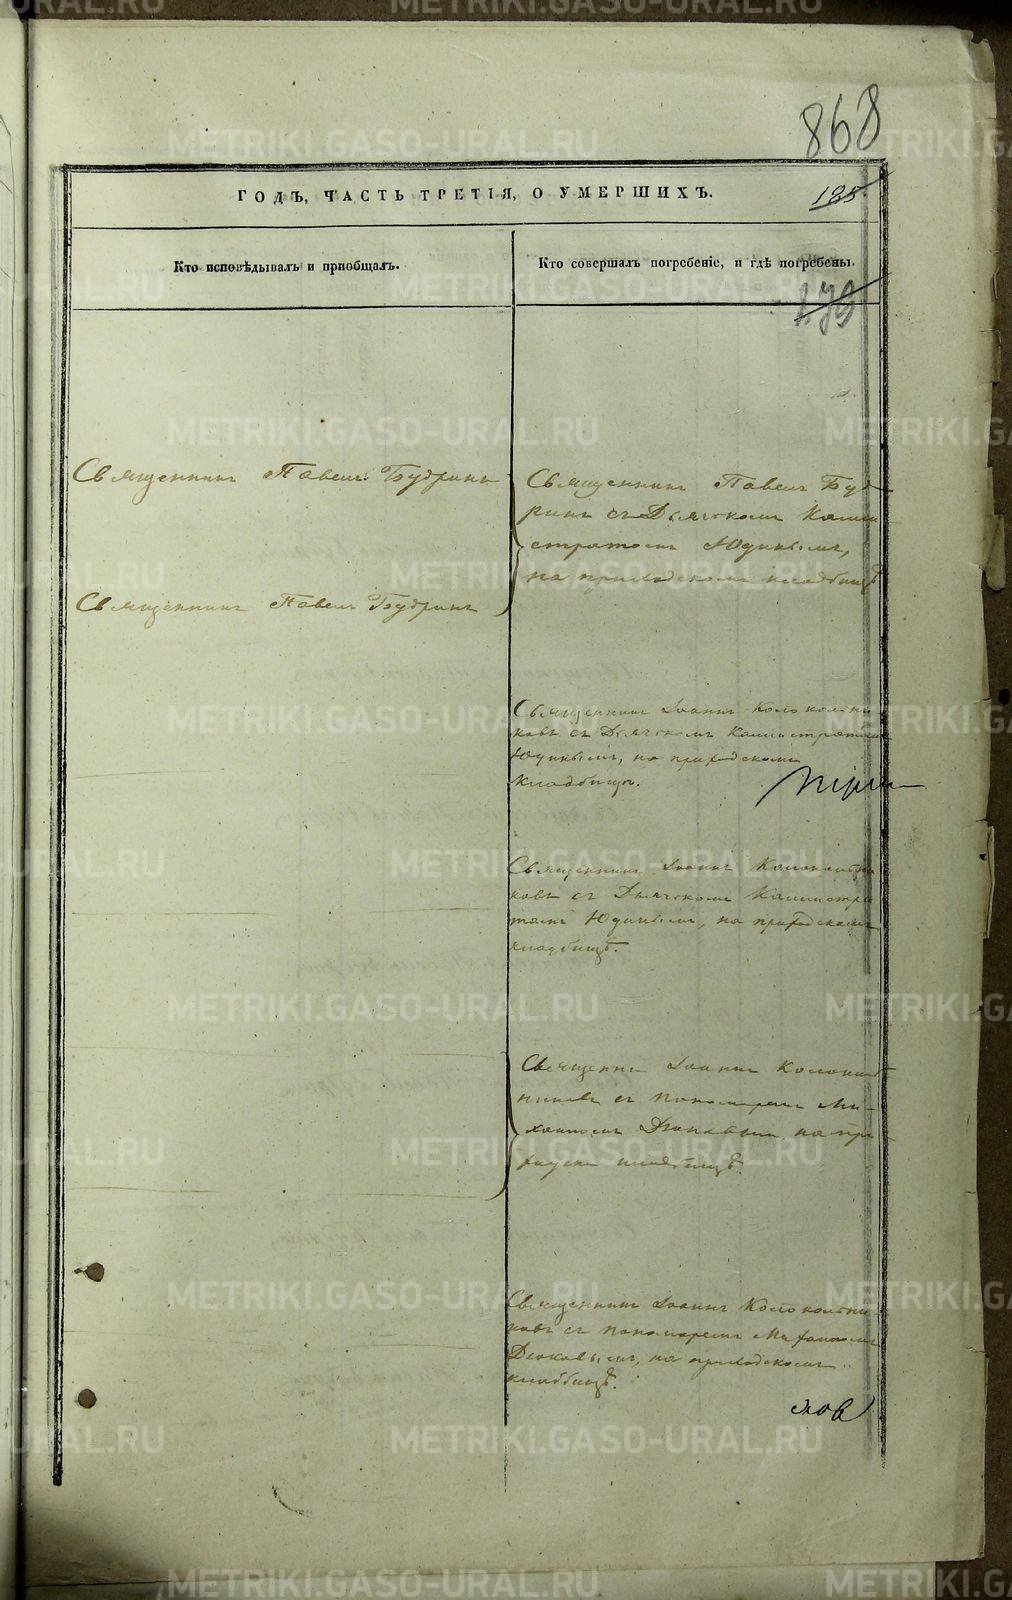 868
ГОДЪ, ЧАСТЬ ТРЕТІЯ, О УМЕРШИХЪ.
185
Кто исповѣдывалъ и пріобщалъ.
Кто совершалъ погребеніе, и гдѣ погребены.
173
Священникъ Павелъ Будринъ
Священникъ Павелъ Будринъ
Священникъ Павелъ Буд-
ринъ съ Дьячкомъ Калли
стратомъ Юдинымъ,
на приходскомъ кладбищѣ
Священникъ Іоаннъ Колокольни
ковъ съ Дьячкомъ Каллистратомъ
Юдинымъ, на приходскомъ
кладбищѣ.
Священникъ Іоаннъ Колокольни
ковъ съ Дьячкомъ Каллистра
томъ Юдинымъ, на приходскомъ
кладбищѣ.
Священникъ Іоаннъ Колоколь
никовъ съ пономаремъ Ми-
хаиломъ на при-
кладбищѣ.
Священникъ Іоаннъ Колокольни
ковъ съ пономаремъ Михаиломъ
на приходскомъ
кладбищѣ.
METRIKI.GASO-URAL.RU